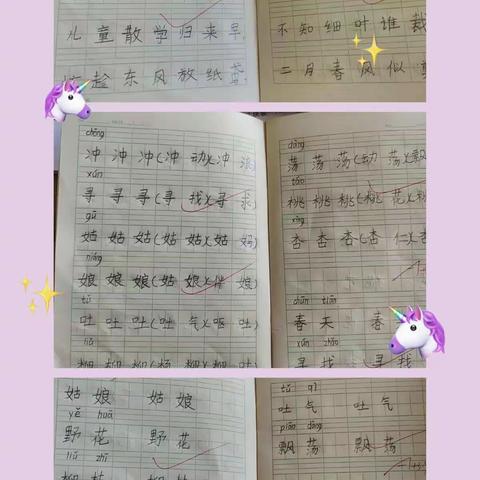 儿童散学归来早
趁东风放纸鸢
不知细叶谁裁
二月春风似
chōng
冲 冲 冲(冲动)(冲浪)
xún
寻 寻 寻(寻找)(寻求)
gū
姑 姑 姑(姑姑)(姑妈)
niáng
娘 娘 娘(姑娘)(伴娘)
tǔ
吐 吐 吐(吐气)(呕吐)
liǔ
柳 柳 柳(杨 柳 柳
dàng
荡 荡 荡(动荡)(飘
táo
桃 桃 桃(桃花)(桃
xìng
杏 杏 杏(杏仁)(杏
chūn tiān
春 天 春
xún zhǎo
寻 找 寻 找
姑 娘 姑 娘
yě huā
野 花 野 花
liǔ zhī
柳 枝 柳 枝
tǔ qì
吐 气 吐 气
piāo dàng
飘 荡 飘 荡